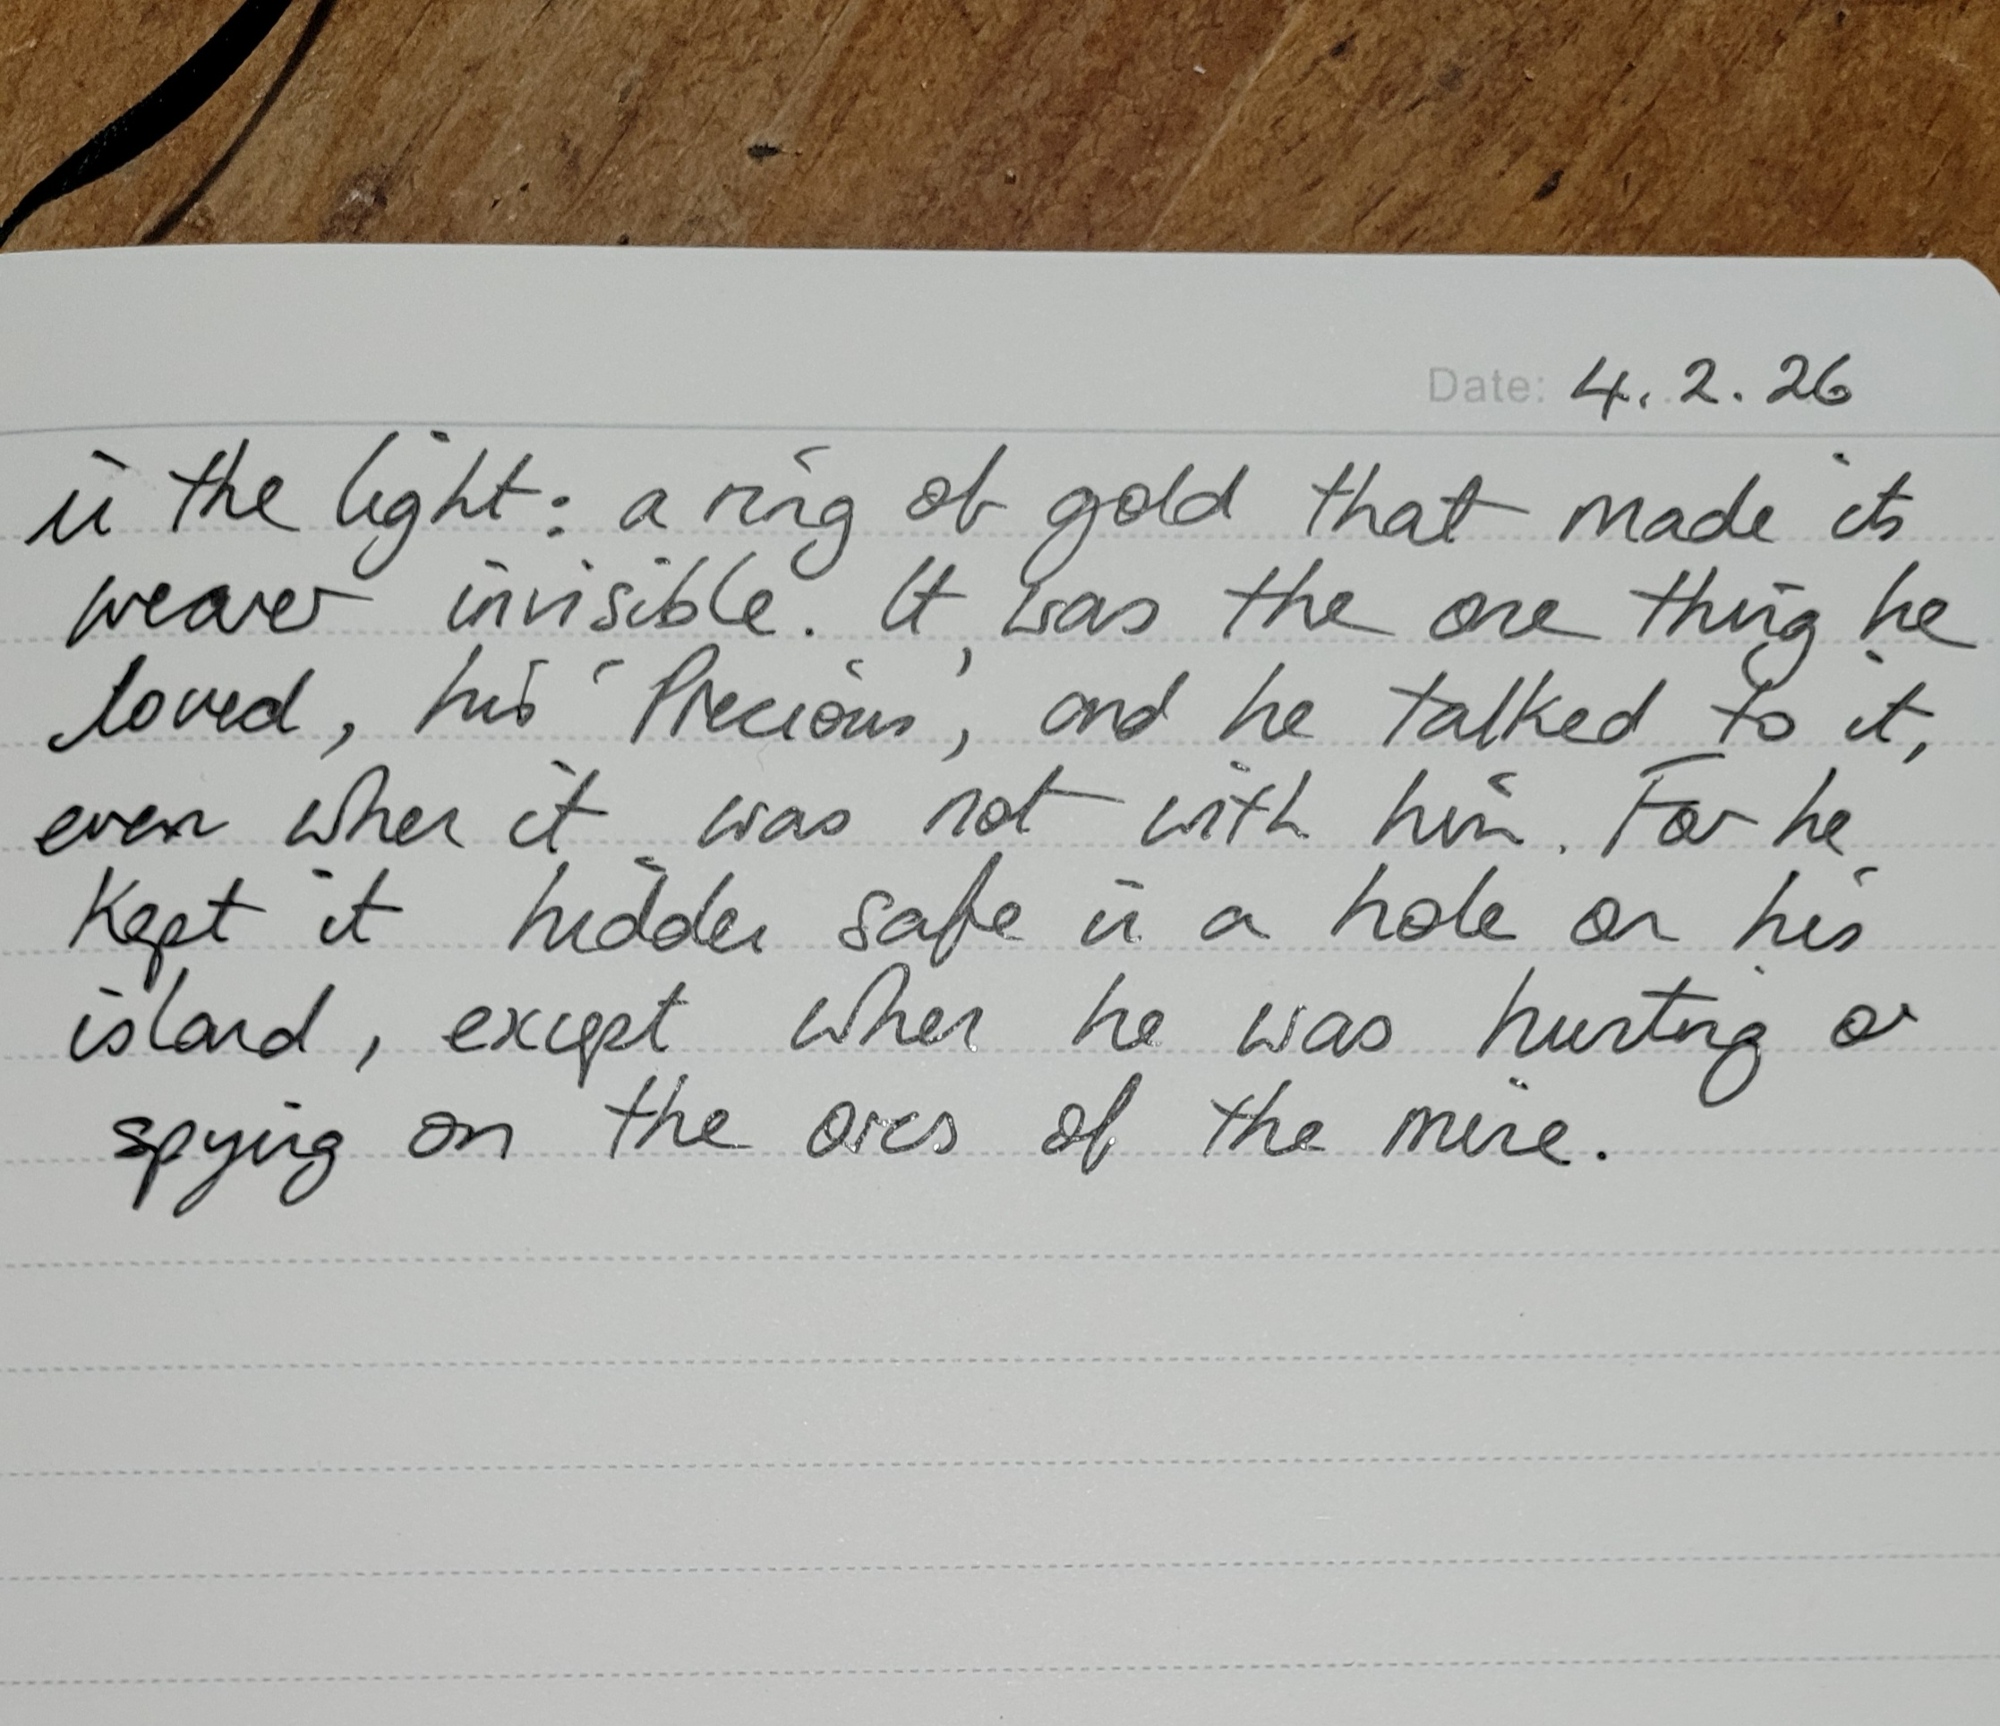 Date: 4.2.26
in the light: a ring of gold that made its
wearer invisible. It was the one thing he
loved, his 'Precious', and he talked to it,
even when it was not with him. For he
kept it hidden safe in a hole on his
island, except when he was hunting or
spying on the orcs of the mine.